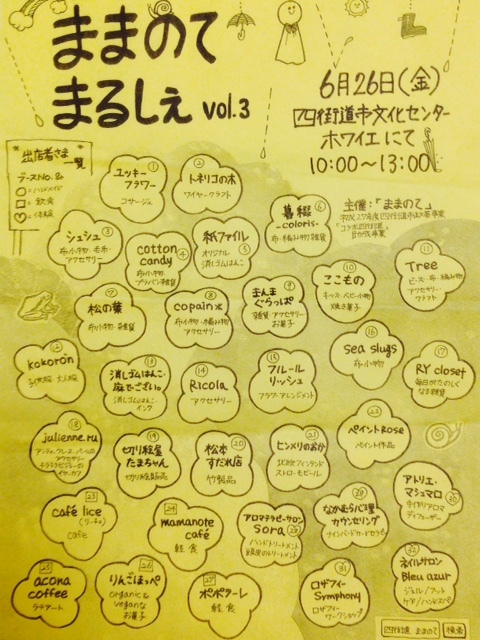 ままのて
まるしぇ vol.3
6月26日(金)
四街道市文化センター
ホワイエにて
10:00〜13:00
主催:「ままのて」
出店者さま
一覧
ブースNo.&
○=ハンドメイド
□=飲食
①
ユッキー
フラワー
コサージュ
②
トネリコの木
ワイヤークラフト
③
シュシュ
布小物・毛糸
アクセサリー
④
cotton
candy
布小物
プラバン雑貨
⑤
紙ファイル
オリジナル
消しゴムはんこ
⑥
暮綴
-coloris-
布・編み物雑貨
⑦
松の葉
布小物・雑貨
⑧
copain*
布小物・編み物
アクセサリー
⑨
まんま
ぐらっぱ
雑貨・アクセサリー
お菓子
⑩
ここもの
キッズ・ベビー小物
焼き菓子
⑪
Tree
ビーズ・布・編み物
アクセサリー
クラフト
⑫
kokoron
子供服 大人服
⑬
消しゴムはんこ・
麻でござい。
消しゴムはんこ・
インク
⑭
Ricola
アクセサリー
⑮
フルール
リッシュ
フラワーアレンジメント
⑯
sea slugs
布小物
⑰
RY closet
毎日がたのしく
なる雑貨
⑱
julienne.ru
アクセサリー
⑲
切り絵屋
たまちゃん
切り絵製品
⑳
松本
すだれ店
竹製品
21
ヒンメリのおか
北欧フィンランド
ストローモビール
22
ペイントRose
ペイント作品
23
café lice
(リーチェ)
cafe
24
mamanote
café
軽食
25
acona
coffee
ラテアート
26
りんごほっぺ
organic &
veganな
お菓子
27
ポポラーレ
軽食
アロマテラピーサロン
Sora
ハンドトリートメント
なかむら心理
カウンセリング
30
アトリエ・
マシュマロ
手作りアロマ
ディフューザー
31
ロザフィー
Symphony
ロザフィー
ワークショップ
32
ネイルサロン
Bleu azur
ジェル/フット
ケア/ハンドスパ
四街道 ままのて 検索